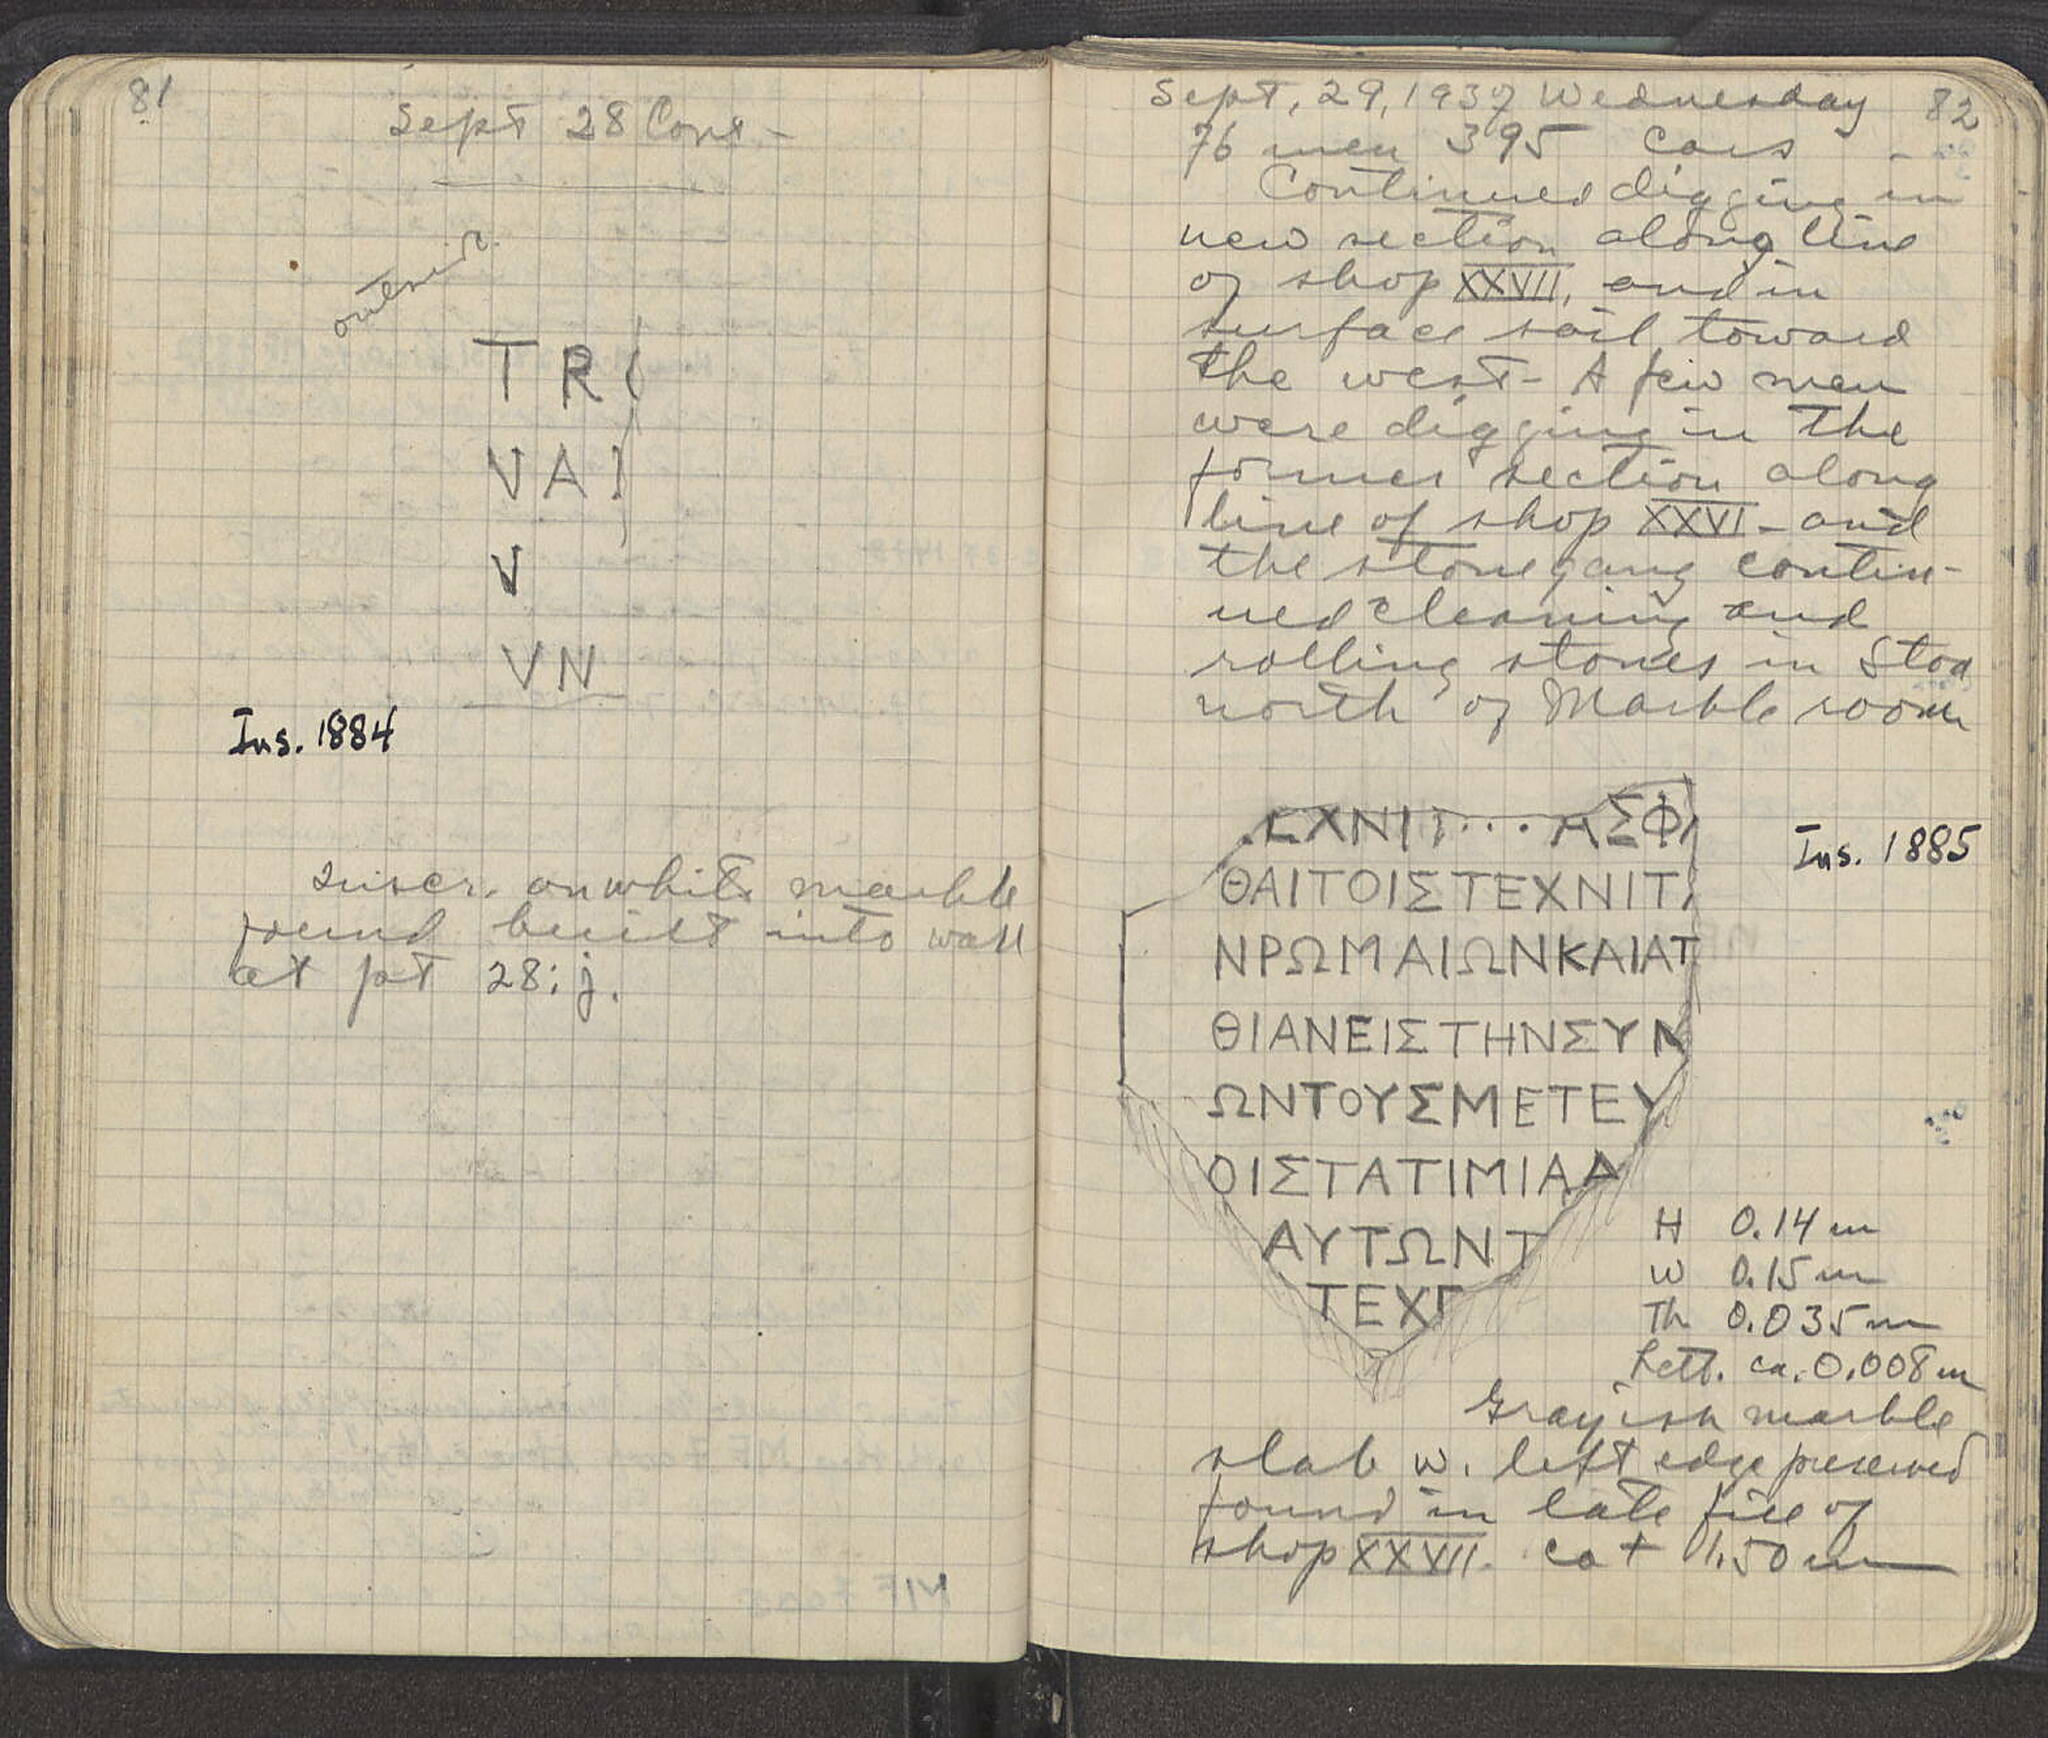 81
Sept 28 Cont -
outside
TR(
VAI
V
VN
Ins. 1884
Inscr. on white marble
found built into wall
at pt 28; j.
Sept, 29, 1937 Wednesday 82
76 men 395 cars
Continued digging in
new section along line
of shop XXVII, and in
surface soil toward
the west - A few men
were digging in the
former section along
line of shop XXVI - and
the stone gang contin-
ued cleaning and
rolling stones in Stoa
north of Marble room
ΕΧΝΙΤ . . . ΑΣΦ
Ins. 1885
ΘΑΙΤΟΙΣΤΕΧΝΙΤ
ΝΡΩΜΑΙΩΝΚΑΙΑΤ
ΘΙΑΝΕΙΣΤΗΝΣΥΝ
ΩΝΤΟΥΣΜΕΤΕΥ
ΟΙΣΤΑΤΙΜΙΑΔ
ΑΥΤΩΝΤ
ΤΕΧΓ
H 0.14 m
W 0.15 m
Th 0.035 m
Lett. ca. 0.008 m
Grayish marble
slab w. left edge preserved
found in late fill of
shop XXVII. ca + 1.50 m